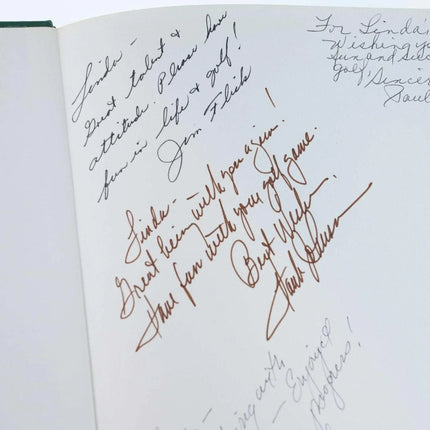 Linda -
Great talent &
attitude. Please have
fun in life & golf!
Jim Flick
For Linda
Wishing yo
fun and suc
golf, Sincer
Paul
Linda -
Great being with you again!
Have fun with your golf game.
Best Wishes
Hank Johnson
with
- Enjoyed
progress!